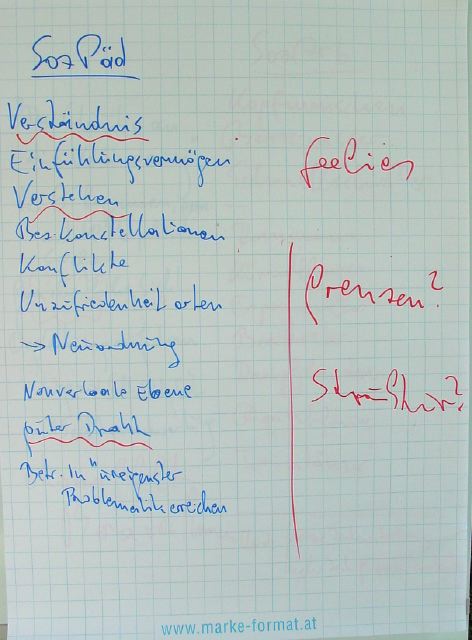 SozPäd
Verständnis
Einfühlungsvermögen
Verstehen
Bez.konstellationen
Konflikte
Unzufriedenheit orten
→ Neuordnung
Nonverbale Ebene
guter Draht
Betr. in "ureigenster
Problematik erreichen
feelies
Grenzen?
Struktur?
www.marke-format.at